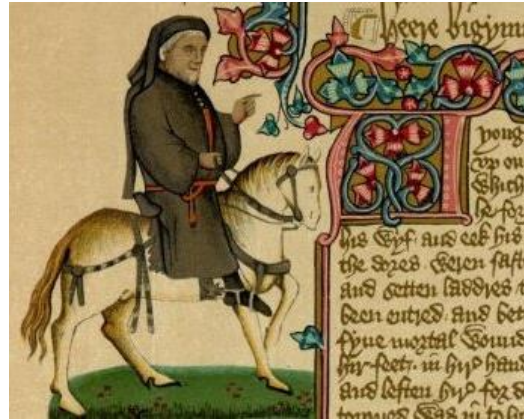 heere bigynn
yong
vp on
Which
he-for
his Wyf· and eek his
the dores· weren faft
and setten laddres t
been entred· and bet
fyue mortal wound
hir feet· in hir hand
and leften hir for d